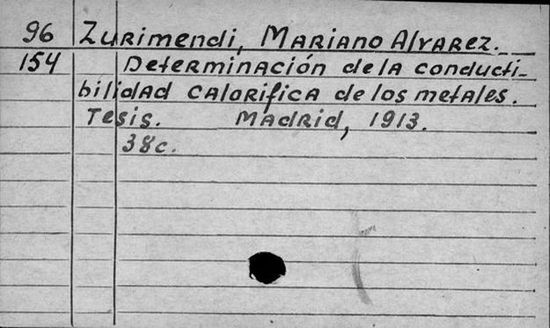 96 Zurimendi, Mariano Alvarez.
154 Determinación de la conducti-
bilidad calorifica de los metales.
Tesis. Madrid, 1913.
38c.